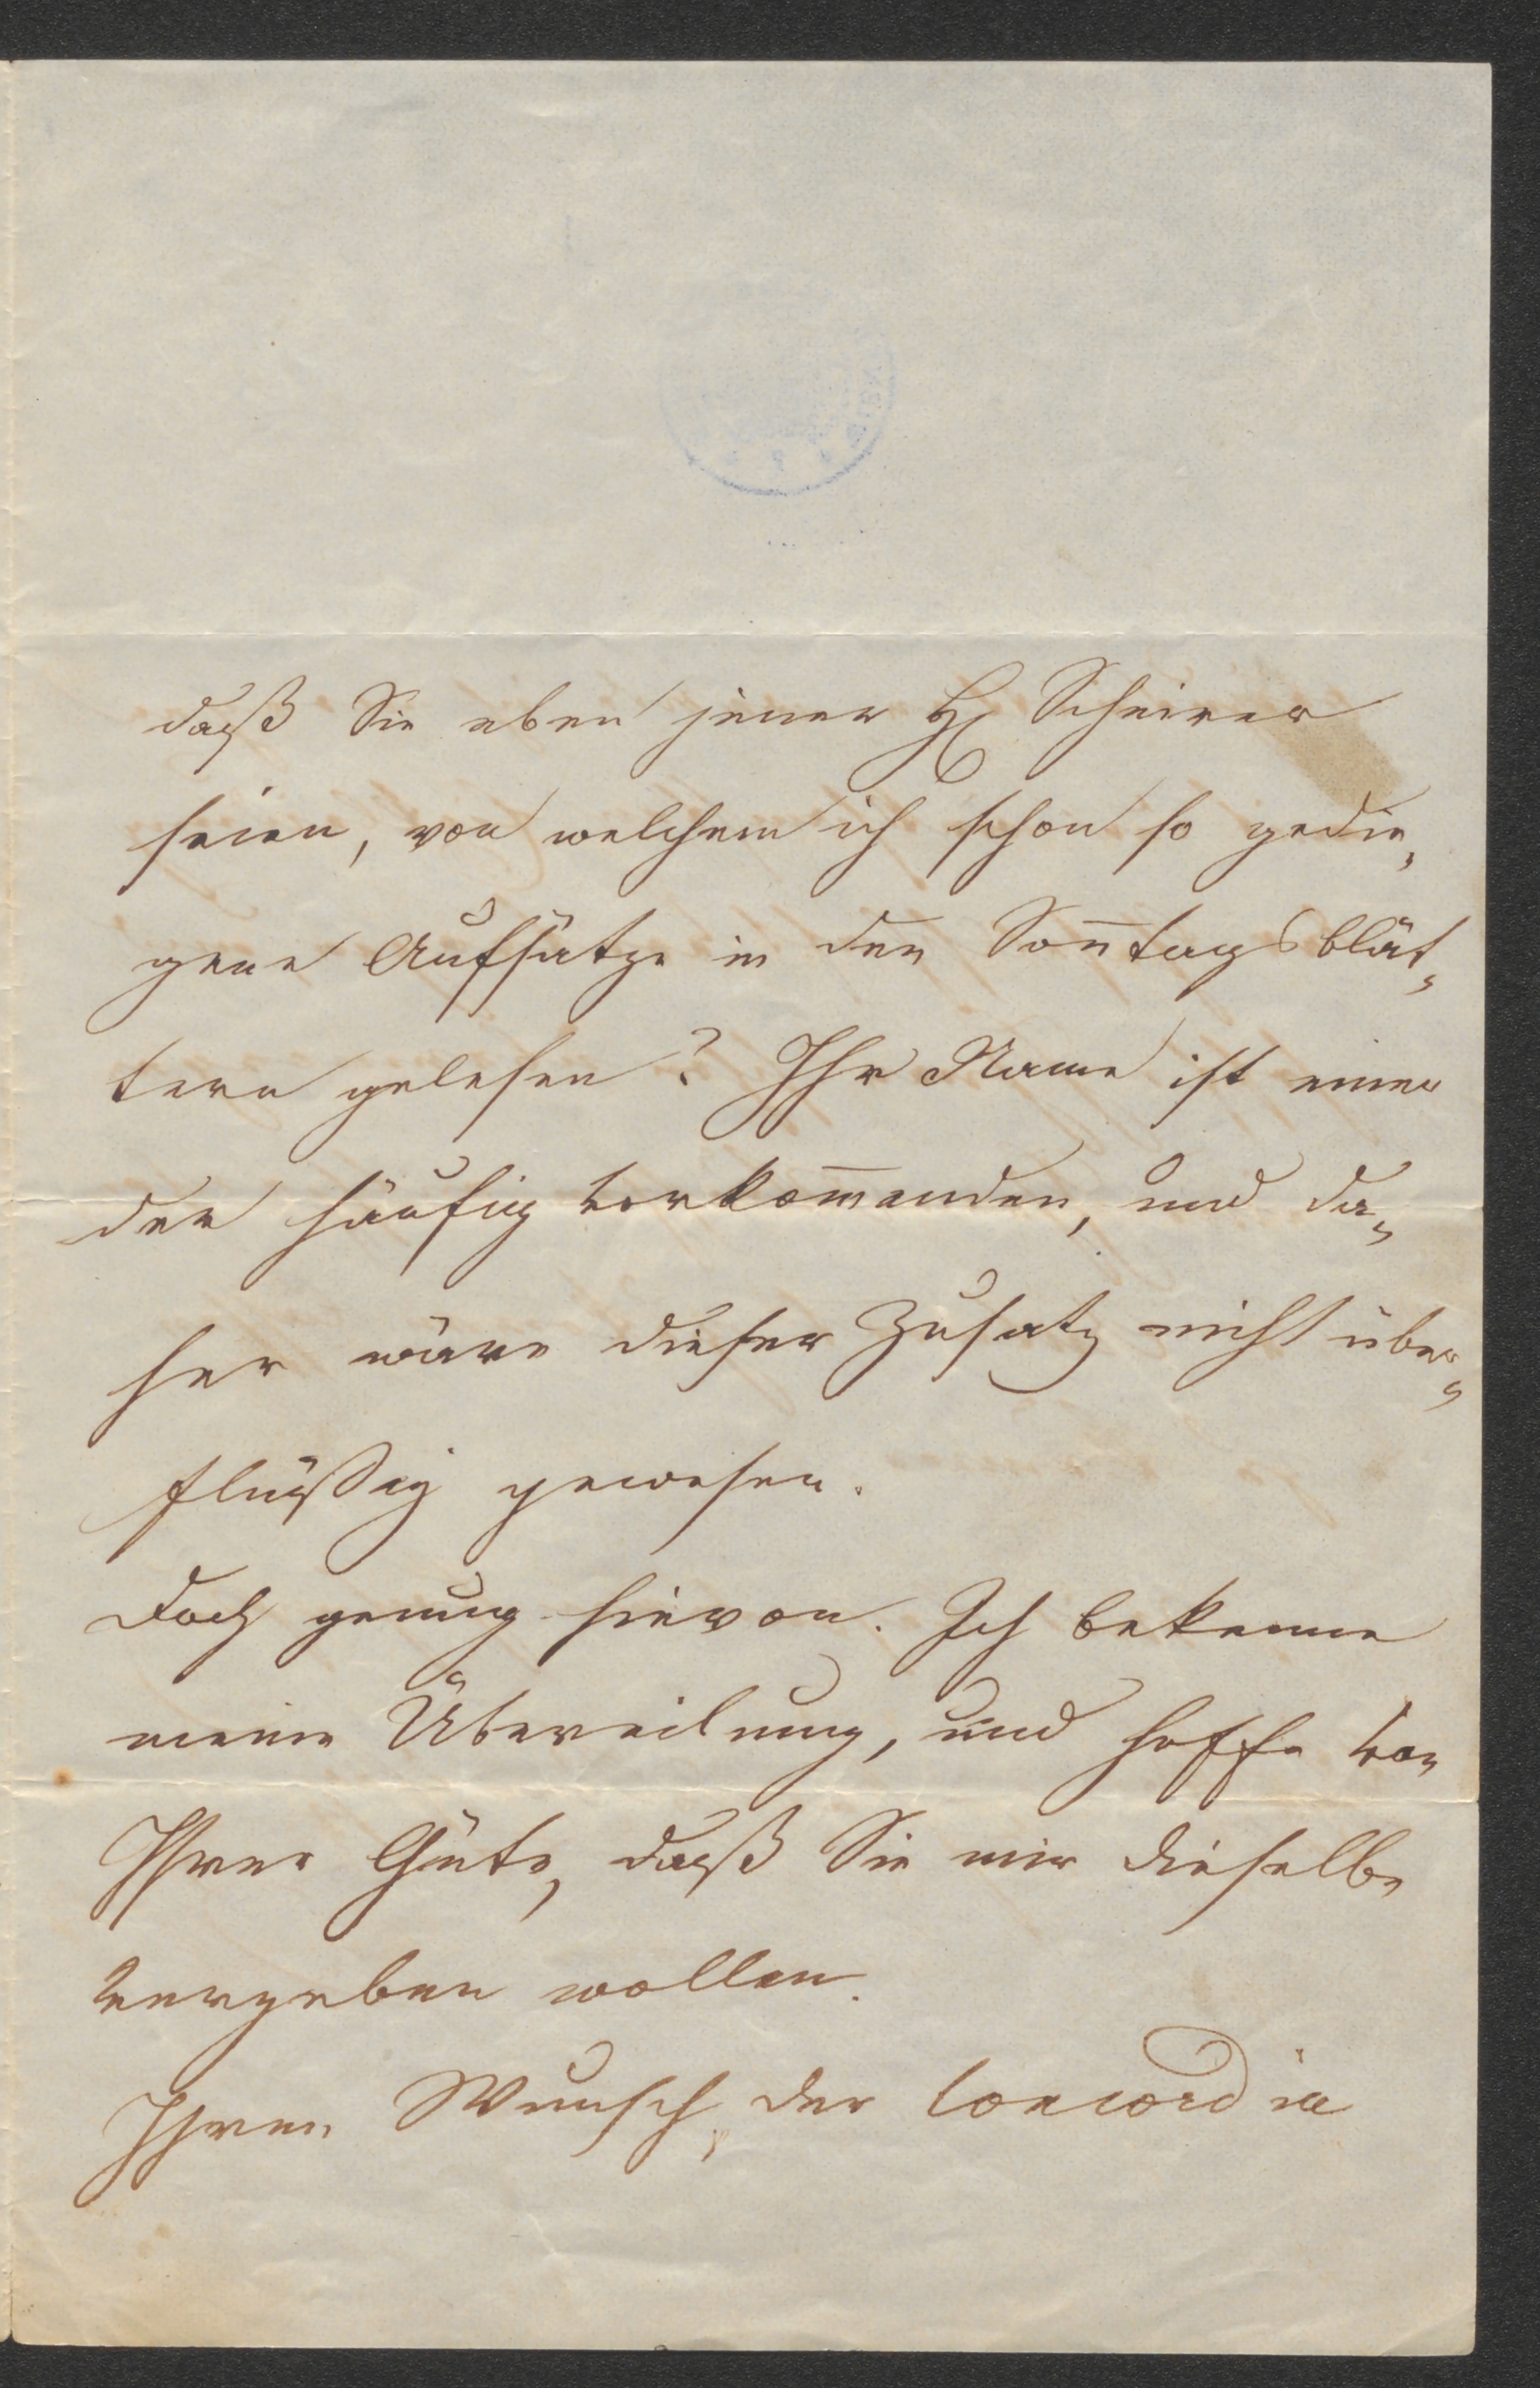 daß Sie eben jener H. Scheirer
seien, von welchem ich schon so gedie„
gene Aufsätze in den Son̄tagsblät„
tern gelesen? Ihr Name ist einer
der häufig vorkom̄enden, und da„
her wäre dieser Zusatz nicht über„
flüßig gewesen.
Doch genug hievon. Ich bekenne
meine Übereilung, und hoffe von
Ihrer Güte, daß Sie mir dieselbe
vergeben wollen.
Ihren Wunsch, der Concordia